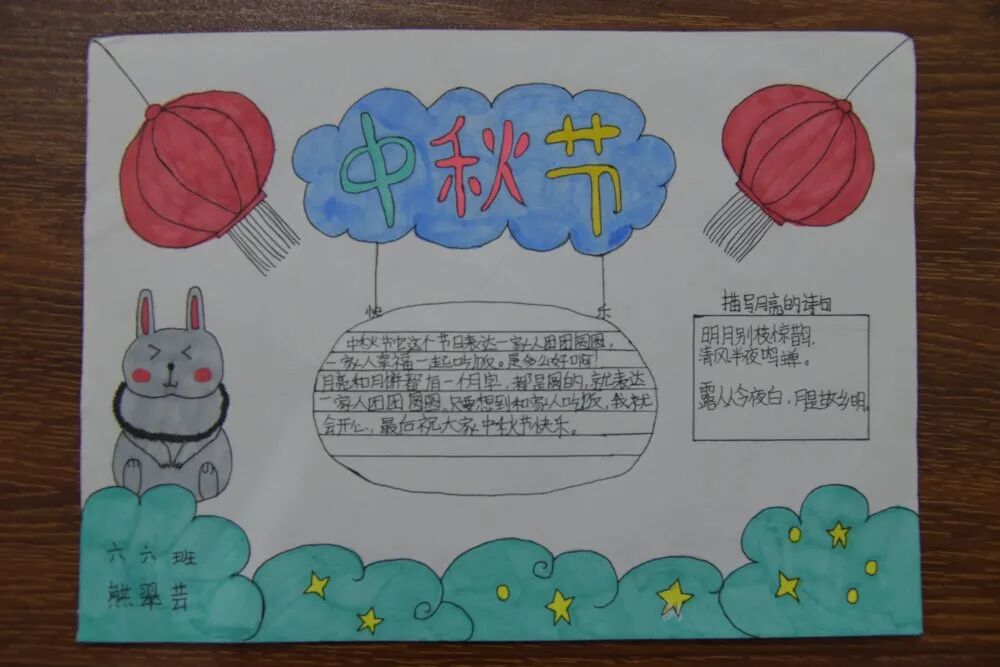 中秋节
快 乐
中秋节它这个节日表达一家人团团圆圆,
一家人幸福一起吃饭。是多么好啊!
月亮和月饼都有一个月字,都是圆的,就表达
一家人团团圆圆。只要想到和家人吃饭,我就
会开心,最后祝大家中秋节快乐。
描写月亮的诗句
明月别枝惊鹊,
清风半夜鸣蝉。
露从今夜白,月是故乡明。
六 六 班
熊翠芸